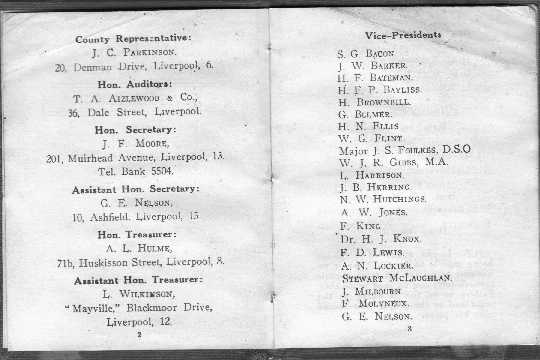 County Representative:
J. C. PARKINSON,
20, Denman Drive, Liverpool, 6.
Hon. Auditors:
T. A. AIZLEWOOD & Co.,
36, Dale Street, Liverpool.
Hon. Secretary:
J. F. MOORE,
201, Muirhead Avenue, Liverpool, 13.
Tel. Bank 5504.
Assistant Hon. Secretary:
G. E. NELSON,
10, Ashfield, Liverpool, 15
Hon. Treasurer:
A. L. HULME,
71b, Huskisson Street, Liverpool, 8.
Assistant Hon. Treasurer:
L. WILKINSON,
"Mayville," Blackmoor Drive,
Liverpool, 12.
2
Vice-Presidents
S. G. BACON
J. W. BARKER.
H. F. BATEMAN.
H. F. P. BAYLISS.
H. BROWNBILL.
G. BULMER.
H. N. ELLIS
W. G. FLINT.
Major J. S. FOULKES, D.S.O
W. J. R. GIBBS, M.A.
L. HARRISON.
J. B. HERRING
N. W. HUTCHINGS.
A. W. JONES.
F. KING
Dr. H. J. KNOX.
F. D. LEWIS.
A. N. LOCKIER.
STEWART MCLAUGHLAN.
J. MILBOURN
F. MOLYNEUX.
G. E. NELSON.
3